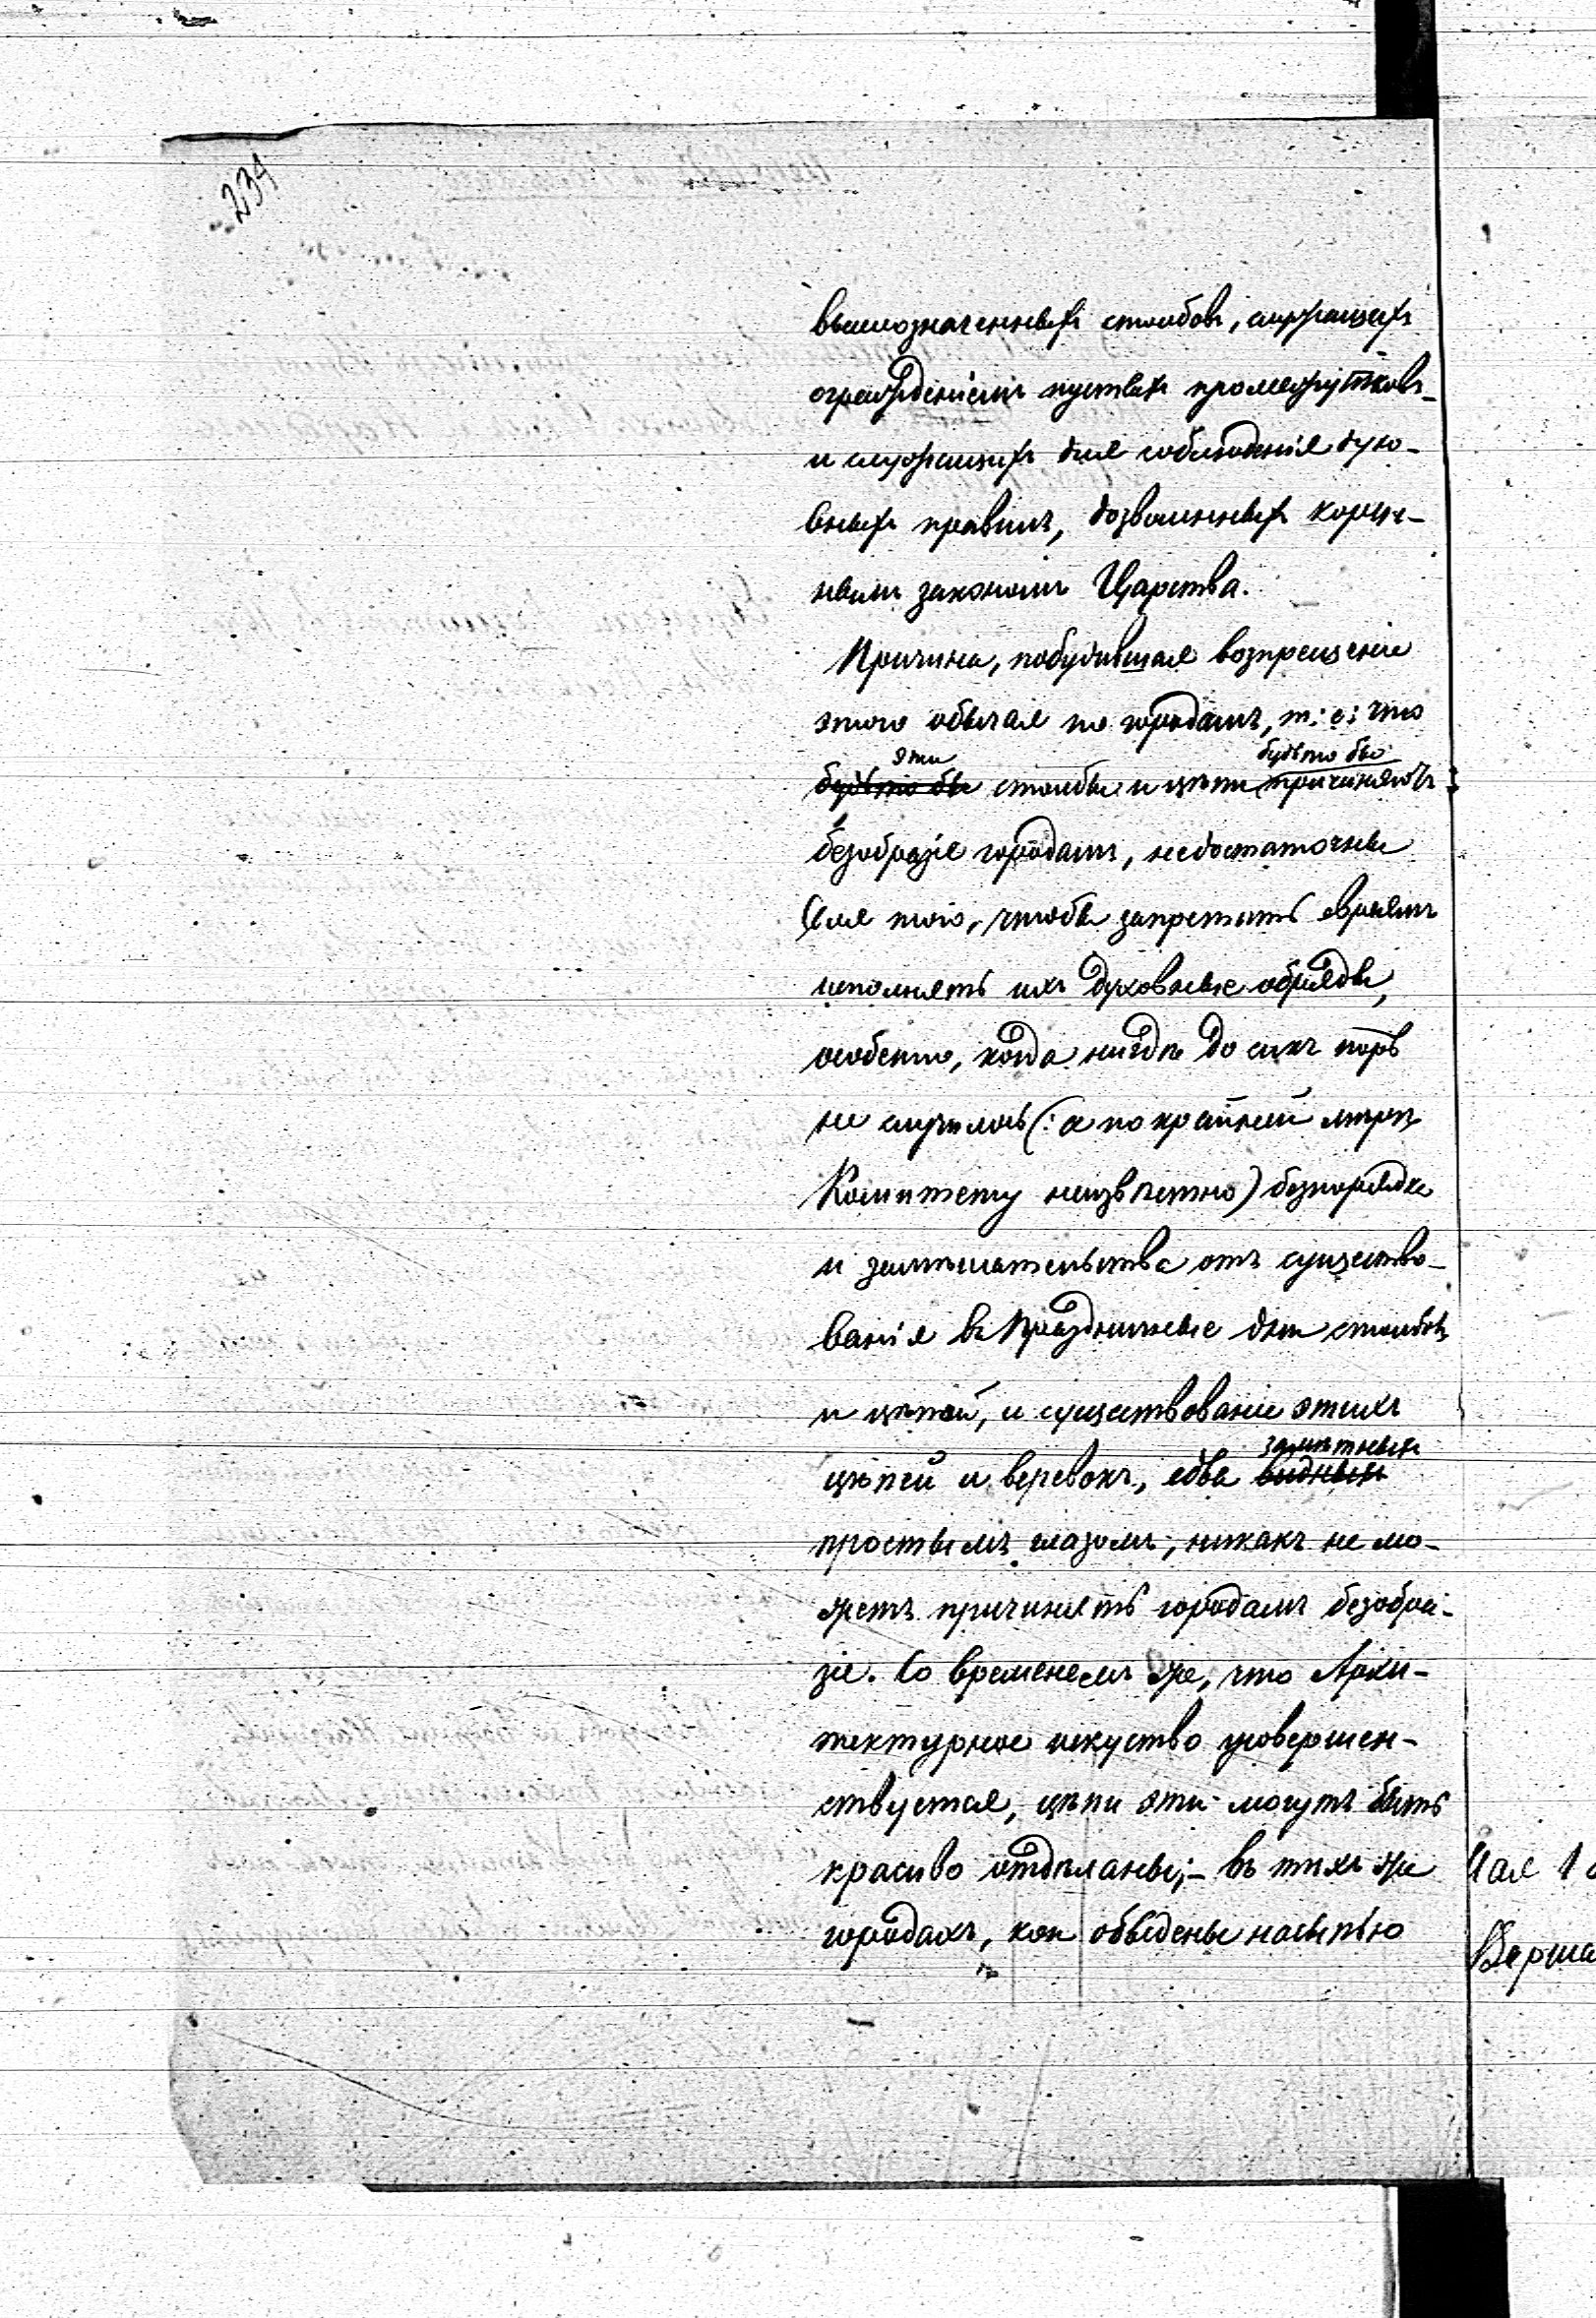 234
вышеозначенныхъ столбовъ, служащихъ
огражденіемъ пустыхъ промежутковъ
и служащихъ для соблюденія духо-
вныхъ правилъ, дозволенныхъ корен-
нымъ закономъ Царства.
Причина, побудившая возпрещеніе
этого обычая по городамъ, т: е: что
эти будьто бы
будьто бы столбы и цѣпи причиняютъ
безобразіе городамъ, недостаточны
для того, чтобы запретить евреямъ
исполнять ихъ духовные обряды,
особенно, когда нигдѣ до сихъ поръ
не случилось (: а по крайней мѣрѣ
Комитету неизвѣстно) безпорядка
и замѣшательства отъ существо-
ванія въ праздничные дни столбовъ
и цѣпей, и существованіе этихъ
замѣтныхъ
цѣпей и веревокъ, едва видныхъ
простымъ глазомъ, никакъ не мо-
жетъ причинять городамъ безобра-
зіе. Со временемъ же, что Архи-
тектурное искуство усовершен-
ствуется, цѣпи эти могутъ быть
красиво отдѣланы; - въ тихъ же
городахъ, кои объѣдены насыпью
Мая 1
Варша